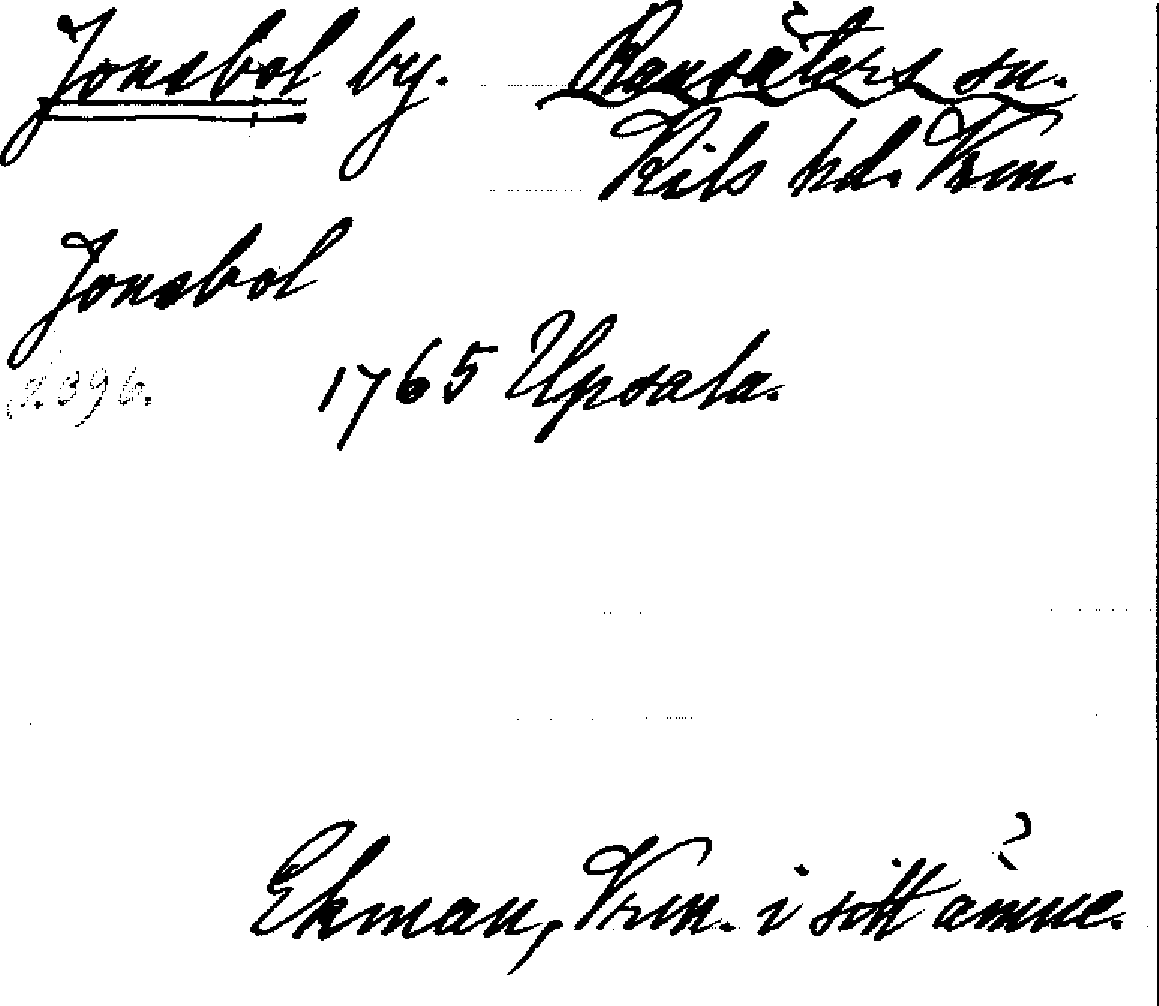 Jonsbol by. Ransäters sn.
Kils hd. Vrm.
Jonsbol
s. 396. 1765 Upsala.
Ekman, Vrm. i sitt ämne.